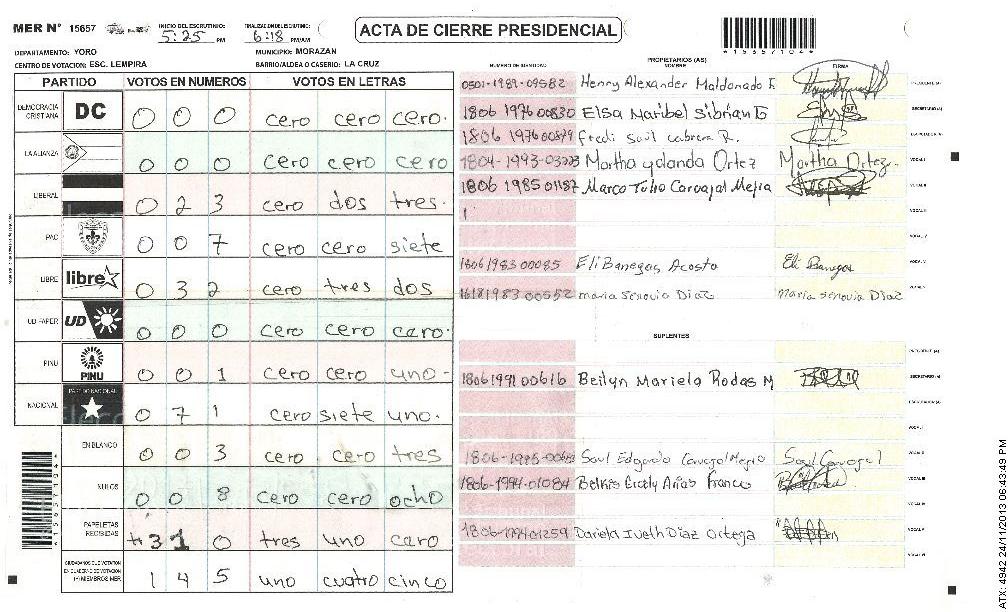 MER N° 15657
INICIO DEL ESCRUTINIO: 5:25 PM
FINALIZACIÓN DEL ESCRUTINIO: 6:18 PM/AM
ACTA DE CIERRE PRESIDENCIAL
*15657104*
DEPARTAMENTO: YORO
MUNICIPIO: MORAZAN
CENTRO DE VOTACION: ESC. LEMPIRA
BARRIO/ALDEA O CASERIO: LA CRUZ
PARTIDO VOTOS EN NUMEROS VOTOS EN LETRAS
DEMOCRACIA CRISTIANA DC 0 0 0 cero cero cero.
LA ALIANZA 0 0 0 cero cero cero
LIBERAL 0 2 3 cero dos tres.
PAC 0 0 7 cero cero siete
LIBRE libre 0 3 2 cero tres dos
UD FAPER UD 0 0 0 cero cero cero.
PINU PINU 0 0 1 cero cero uno-
NACIONAL PARTIDO NACIONAL 0 7 1 cero siete uno.
EN BLANCO 0 0 3 cero cero tres
NULOS 0 0 8 cero cero ocho
PAPELETAS RECIBIDAS 3 1 0 tres uno cero
CIUDADANOS QUE VOTARON EN CUADERNO DE VOTACION (+) MIEMBROS MER 1 4 5 uno cuatro cinco
PROPIETARIOS (AS)
NUMERO DE IDENTIDAD NOMBRE FIRMA
0501-1989-09582 Henry Alexander Maldonado PRESIDENTE (A)
1806 1976 00830 Elsa Maribel Sibrian SECRETARIO (A)
1806 1976 00879 Fredi Saul cabrera R. ESCRUTADOR (A)
1804-1993-03223 Martha yolanda Ortez Martha Ortez VOCAL I
1806 1985 01187 Marco Tolio Carvajal Mejia VOCAL II
VOCAL III
VOCAL IV
1806 1983 00085 Eli Banegas Acosta Eli Banegas VOCAL V
1983 00552 maria Senovia Diaz maria senovia Diaz
SUPLENTES
PRESIDENTE (A)
1806 1991 00616 Beilyn Mariela Rodas M SECRETARIO (A)
ESCRUTADOR (A)
VOCAL I
1806-1995- Saul Edgardo Carvajal Mejia Saul Carvajal VOCAL II
1806-1994-01084 Belkis Arias Franco VOCAL III
VOCAL IV
01259 Daniela Iveth Diaz Ortega VOCAL V
VOCAL VI
ATX: 4942 24/11/2013 06:43:49 PM